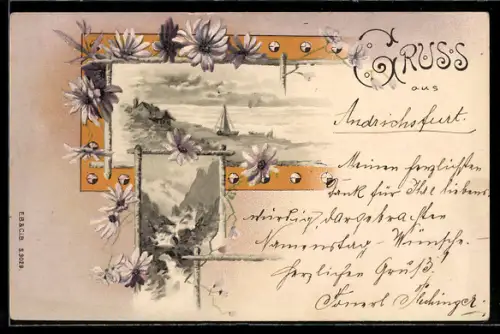 GRUSS
aus
Andrichsfurt.
Meinen herzlichsten
Dank für Ihre liebens-
würdig dargebrachten
Namenstag-Wünsche.
Herzlichen Gruß
F.B.&C.i.B. S.3029.